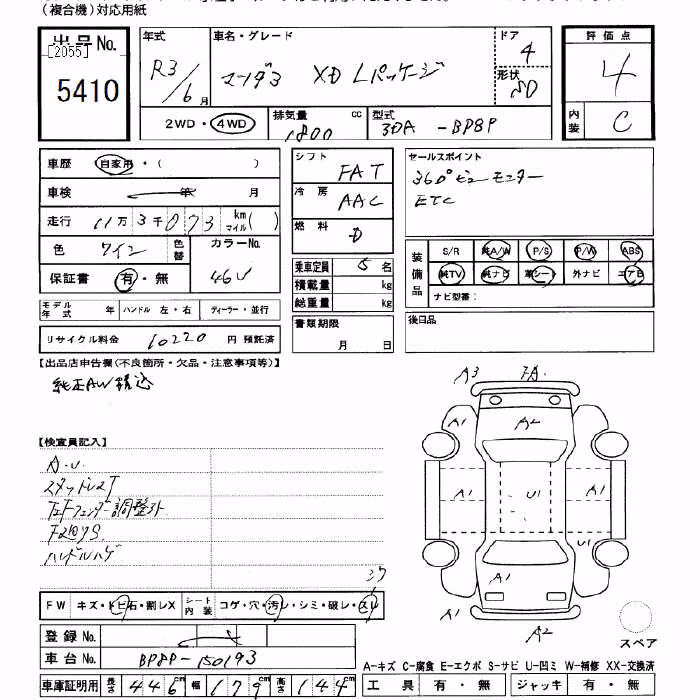 (複合機)対応用紙
出品No.
[2055]
5410
年式 R3/6月
車名・グレード マツダ3 XD Lパッケージ
ドア 4
形状 SD
2WD・4WD
排気量 1800 cc
型式 3DA-BP8P
評価点 4
内装 C
車歴 自家用・( )
車検 年 月
走行 11万3千073 km マイル( )
色 ワイン 色替
カラーNo. 46V
保証書 有・無
モデル年式 年 ハンドル 左・右 ディーラー・並行
リサイクル料金 10220 円 預託済
シフト FAT
冷房 AAC
燃料 D
乗車定員 5 名
積載量 kg
総重量 kg
書類期限 月 日
セールスポイント
360°ビューモニター
ETC
装備品
S/R 純A/W P/S P/W ABS
純TV 純ナビ 革シート 外ナビ エアB
ナビ型番:
後日品
【出品店申告欄(不良箇所・欠品・注意事項等)】
純正AW積込
【検査員記入】
A.U.
スタッドレスT
左Fフェンダー調整外
F2のワS
ハンドルハゲ
FW キズ・トビ石・割レX
シート内装 コゲ・穴・汚レ・シミ・破レ・スレ
登録No.
車台No. BP8P-150193
車庫証明用 長さ 446 cm 幅 179 cm 高さ 144 cm
A3 FA
A1 A2 A1
A1 U1 A1
U1
A1 A1
A1 A2
スペア
A-キズ C-腐食 E-エクボ S-サビ U-凹ミ W-補修 XX-交換済
工具 有・無 ジャッキ 有・無